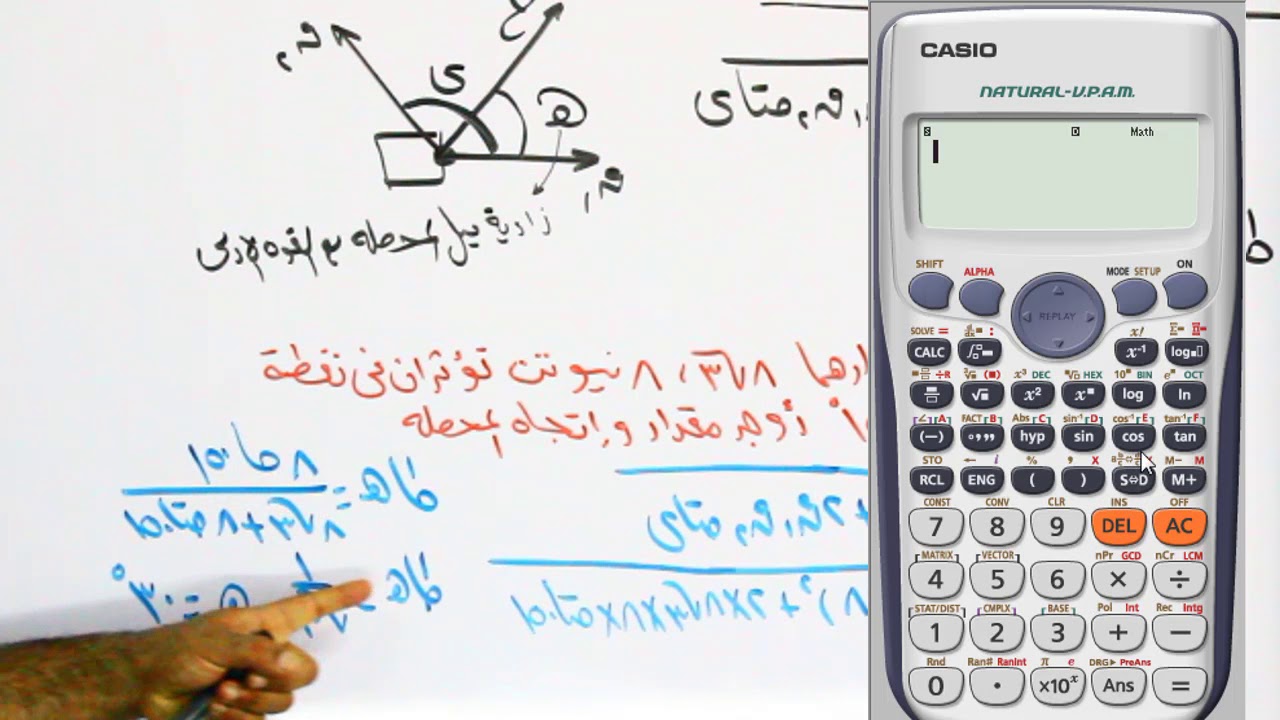 ق٢
ح
ى
هـ
ق١
زاوية ميل المحصلة مع القوة الأولى
ق٢ حتاى
٨√٣ ، ٨ نيوتن تؤثران فى نقطة
أوجد مقدار واتجاه المحصلة
+ ٢ق١ ق٢ حتاى
٨)² + ٢×٨√٣×٨×حتا١٥٠
طاهـ = ٨ حا١٥٠ / ٨√٣ + ٨ حتا١٥٠
طاهـ =
هـ = ٣٠°
CASIO
NATURAL-V.P.A.M.
S D Math
SHIFT ALPHA REPLAY MODE SETUP ON
SOLVE = x! Σ
CALC x⁻¹ log
÷R x³ DEC HEX 10 BIN e OCT
√ x² x log ln
∠ A FACT B Abs C sin⁻¹ D cos⁻¹ E tan⁻¹ F
(−) hyp sin cos tan
STO ← i % , X M− M
RCL ENG ( ) S⇔D M+
CONST CONV CLR INS OFF
7 8 9 DEL AC
MATRIX VECTOR nPr GCD nCr LCM
4 5 6 × ÷
STAT/DIST CMPLX BASE Pol Int Rec Intg
1 2 3 + −
Rnd Ran# RanInt π e DRG▶ PreAns
0 . ×10ˣ Ans =